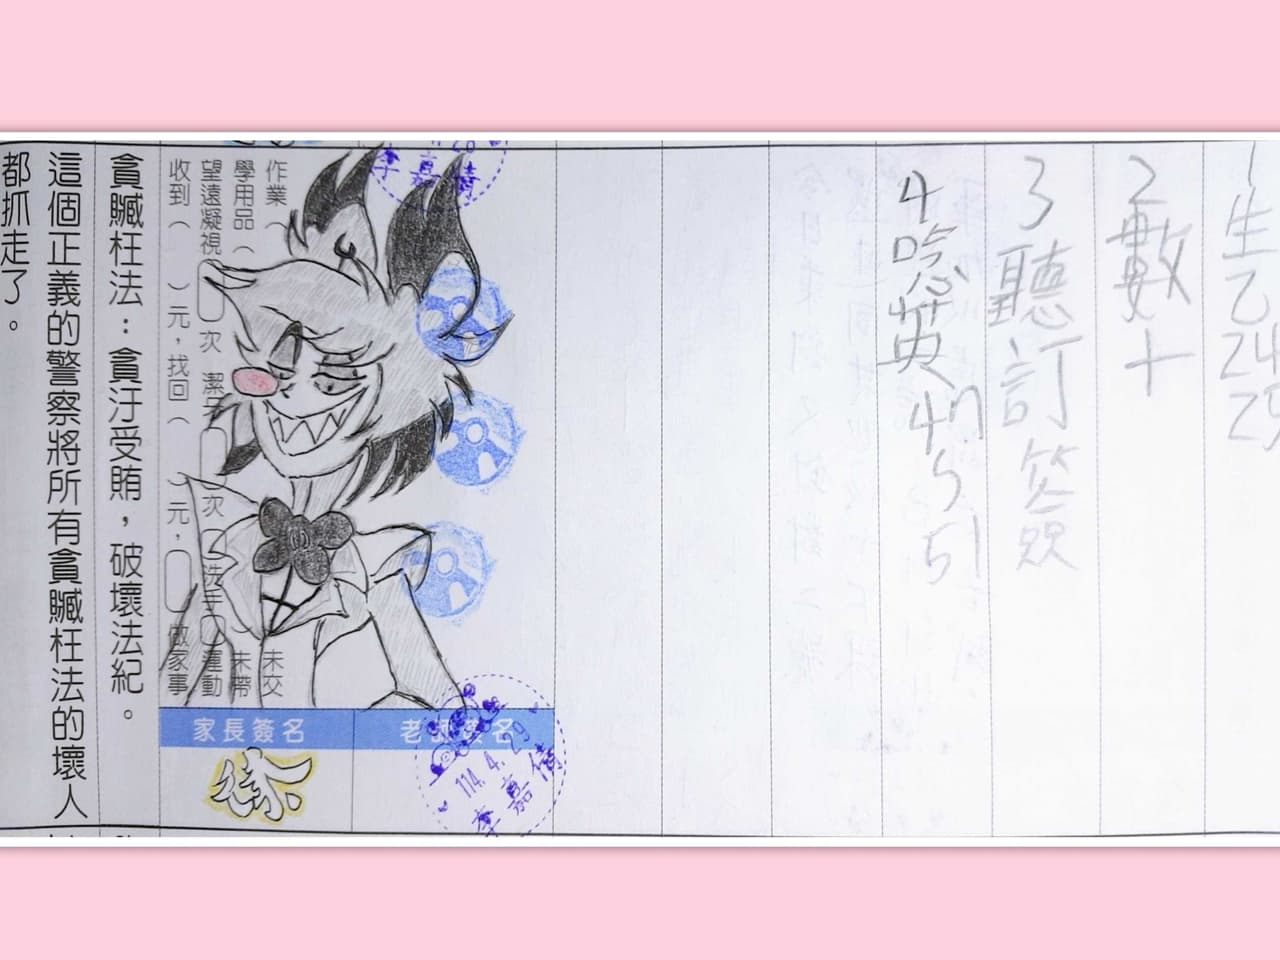 1生乙24
25
2數十
3聽訂签
4唸英47
5
51
作業（
未交
學用品（
未帶
望遠凝視 次 潔牙 次 洗手 運動
收到（ ）元，找回（ ）元， 做家事
家長簽名
老師簽名
徐
114.4.29
李嘉倩
李嘉倩
貪贓枉法：貪汙受賄，破壞法紀。
這個正義的警察將所有貪贓枉法的壞人
都抓走了。